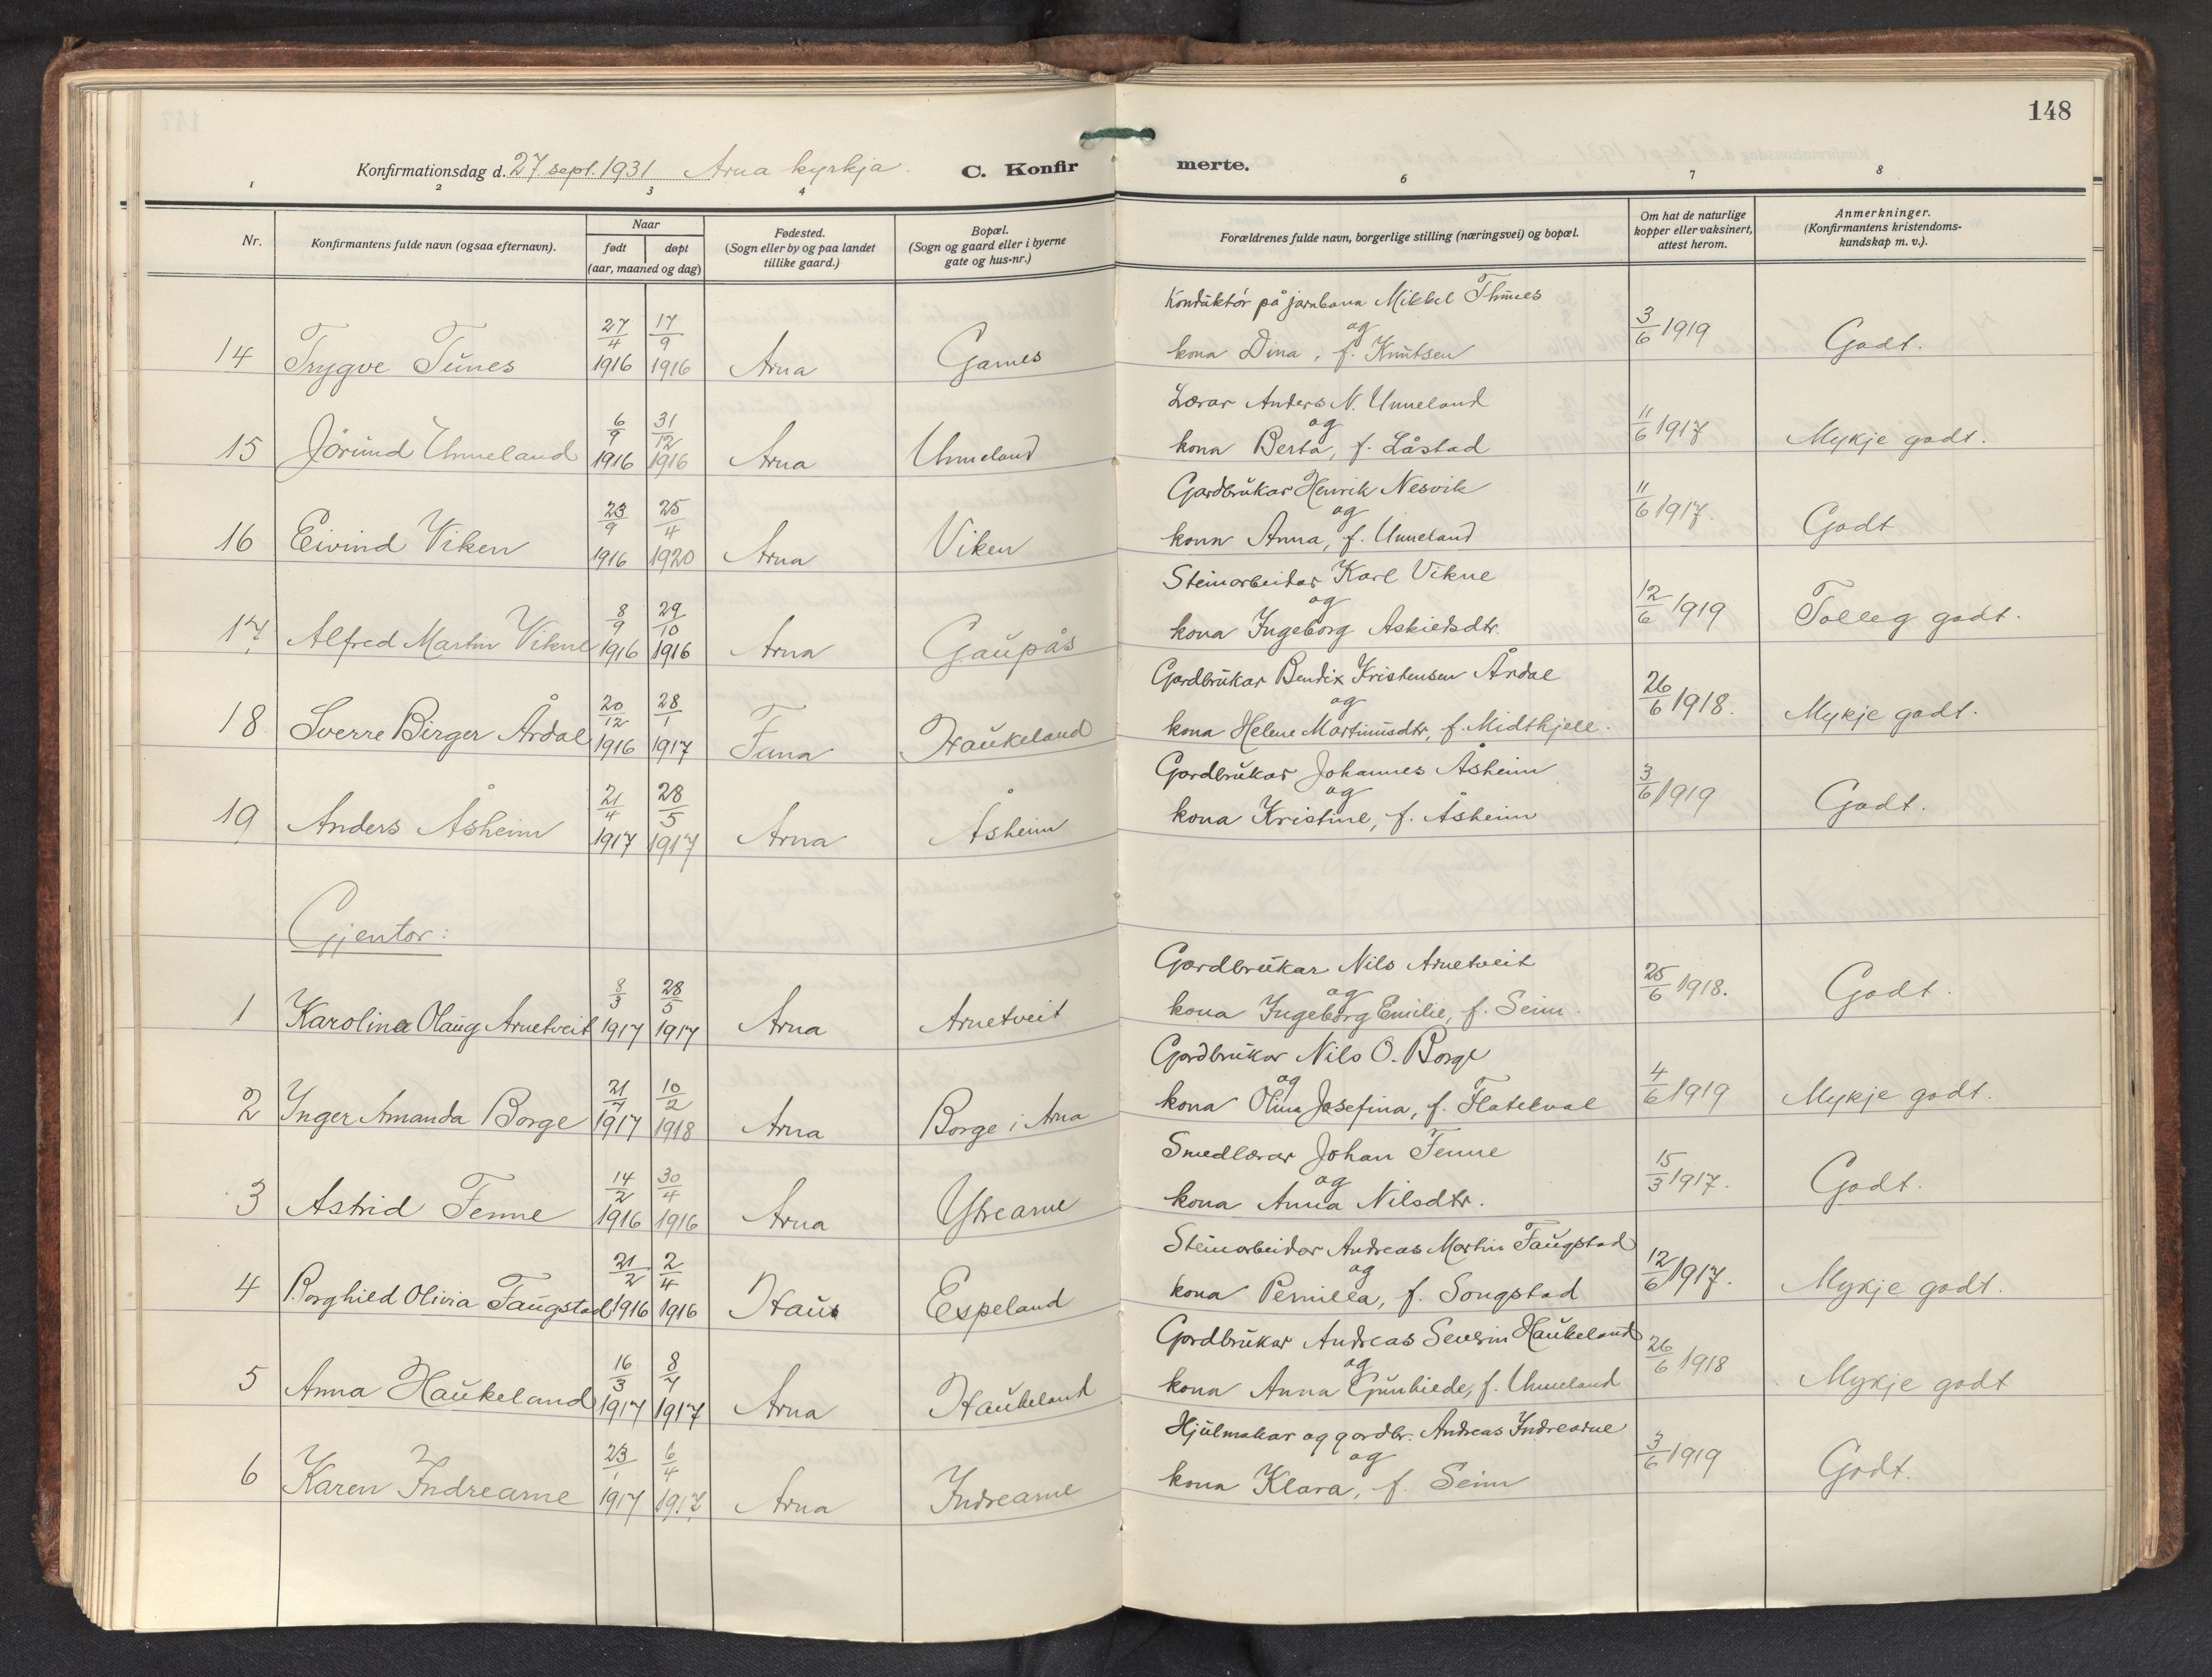 148
Konfirmationsdag d. 27 sept. 1931 Arna kyrkja. C. Konfirmerte.
1 2 3 4 6 7 8
Nr.
Konfirmantens fulde navn (ogsaa efternavn).
Naar
født døpt
(aar, maaned og dag)
Fødested.
(Sogn eller by og paa landet
tillike gaard.)
Bopæl.
(Sogn og gaard eller i byerne
gate og hus-nr.)
Forældrenes fulde navn, borgerlige stilling (næringsvei) og bopæl.
Om hat de naturlige
kopper eller vaksinert,
attest herom.
Anmerkninger.
(Konfirmantens kristendoms-
kundskap m. v.).
14 Trygve Tunes 27/4 1916 17/9 1916 Arna Garnes
Konduktør på jarnbana Mikkel Thunes
og
kona Dina, f. Knutsen
3/6 1919 Godt.
15 Jórund Unneland 6/9 1916 31/12 1916 Arna Unneland
Lærar Anders N. Unneland
og
kona Berta, f. Låstad
11/6 1917 Mykje godt.
16 Eivind Viken 23/9 1916 25/4 1920 Arna Viken
Gardbrukar Henrik Nesvik
og
kona Anna, f. Unneland
11/6 1917. Godt
17. Alfred Martin Vikne 8/9 1916 29/10 1916 Arna Gaupås
Steinarbeidar Karl Vikne
og
kona Ingeborg Askielsdtr.
12/6 1919 Tolleg godt.
18 Sverre Birger Årdal 20/12 1916 28/1 1917 Fana Haukeland
Gardbrukar Bendix Kristensen Årdal
og
kona Helene Martinusdtr, f. Midthjell.
26/6 1918. Mykje godt.
19 Anders Åsheim 21/4 1917 28/5 1917 Arna Åsheim
Gardbrukar Johannes Åsheim
og
kona Kristine, f. Åsheim
3/6 1919 Godt.
Gjentor:
1 Karolina Olaug Arnetveit 8/3 1917 28/5 1917 Arna Arnetveit
Gardbrukar Nils Arnetveit
og
kona Ingeborg Emilie, f. Seim.
25/6 1918. Godt.
2 Inger Amanda Borge 21/7 1917 10/2 1918 Arna Borge i Arna
Gardbrukar Nils O. Borge
og
kona Olina Josefina, f. Flatekval
4/6 1919 Mykje godt.
3 Astrid Fenne 14/2 1916 30/4 1916 Arna Ytrearne
Smedlærar Johan Fenne
og
kona Anna Nilsdtr.
15/3 1917. Godt.
4 Borghild Olivia Faugstad 21/2 1916 2/4 1916 Haus Espeland
Steinarbeidar Andreas Martin Faugstad
og
kona Pernilla, f. Songstad
12/6 1917. Mykje godt.
5 Anna Haukeland 16/3 1917 8/7 1917 Arna Haukeland
Gardbrukar Andreas Severin Haukeland
og
kona Anna Gunhilde, f. Unneland
26/6 1918 Mykje godt
6 Karen Indrearne 23/1 1917 6/4 1917 Arna Indrearne
Hjulmakar og gardbr. Andreas Indrearne
og
kona Klara, f. Seim
3/6 1919 Godt.